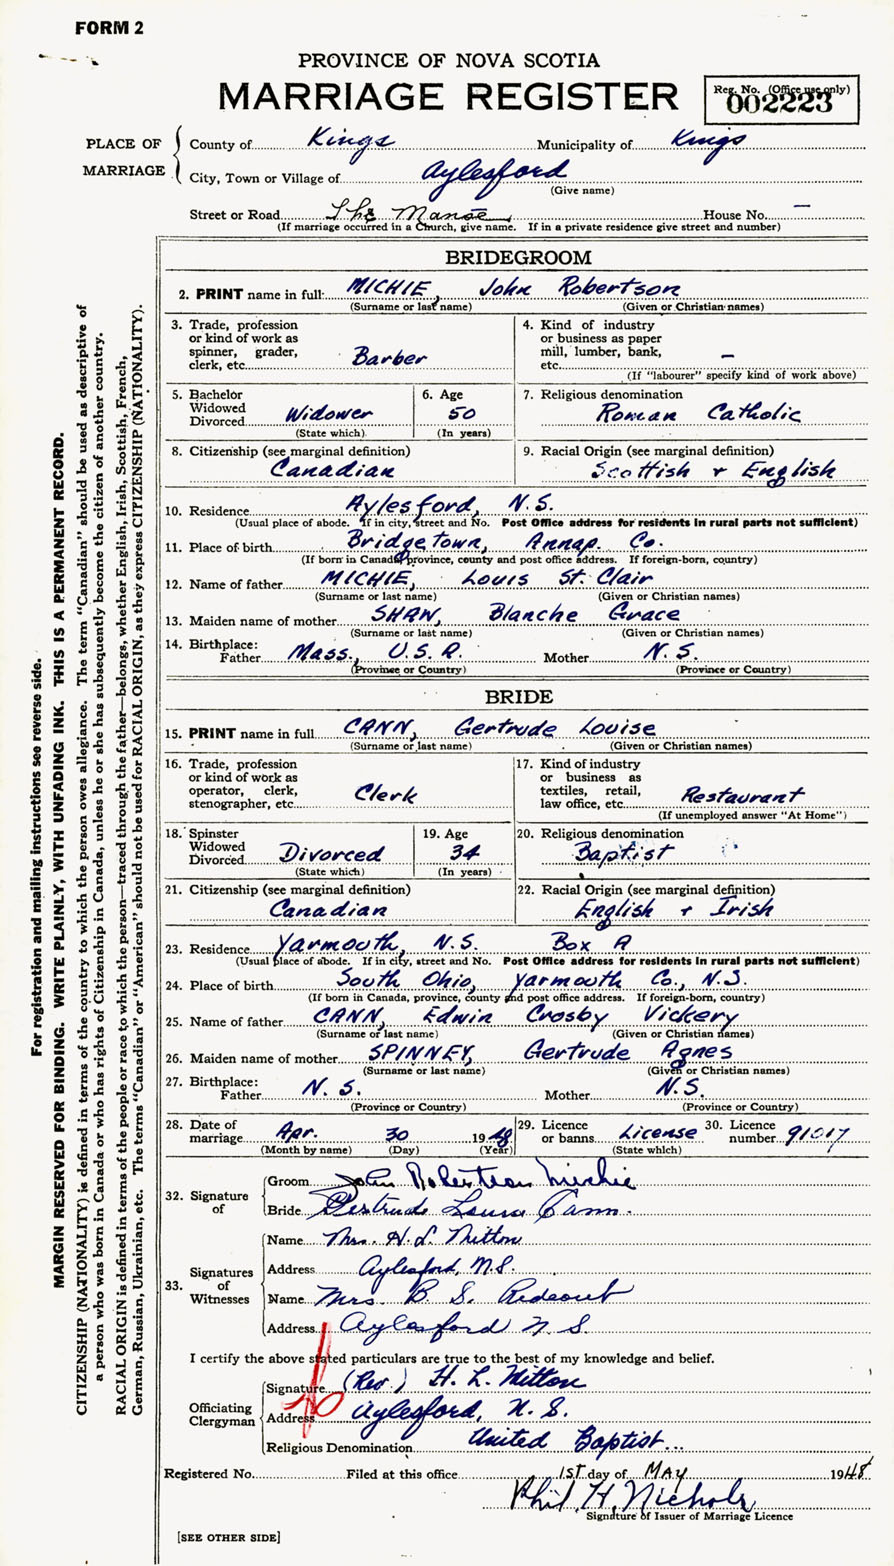 FORM 2
PROVINCE OF NOVA SCOTIA
MARRIAGE REGISTER
Reg. No. (Office use only)
002223
PLACE OF MARRIAGE
County of Kings Municipality of Kings
City, Town or Village of Aylesford
(Give name)
Street or Road The Manse House No. —
(If marriage occurred in a Church, give name. If in a private residence give street and number)
BRIDEGROOM
2. PRINT name in full: MICHIE, John Robertson
(Surname or last name) (Given or Christian names)
3. Trade, profession or kind of work as spinner, grader, clerk, etc. Barber
4. Kind of industry or business as paper mill, lumber, bank, etc. —
(If "labourer" specify kind of work above)
5. Bachelor Widowed Divorced Widower
(State which)
6. Age 50
(In years)
7. Religious denomination
Roman Catholic
8. Citizenship (see marginal definition)
Canadian
9. Racial Origin (see marginal definition)
Scottish + English
10. Residence Aylesford, N.S.
(Usual place of abode. If in city, street and No. Post Office address for residents in rural parts not sufficient)
11. Place of birth Bridgetown, Annap. Co.
(If born in Canada, province, county and post office address. If foreign-born, country)
12. Name of father MICHIE, Louis St. Clair
(Surname or last name) (Given or Christian names)
13. Maiden name of mother SHAW, Blanche Grace
(Surname or last name) (Given or Christian names)
14. Birthplace:
Father Mass., U.S.A. Mother N.S.
(Province or Country) (Province or Country)
BRIDE
15. PRINT name in full CANN, Gertrude Louise
(Surname or last name) (Given or Christian names)
16. Trade, profession or kind of work as operator, clerk, stenographer, etc. Clerk
17. Kind of industry or business as textiles, retail, law office, etc. Restaurant
(If unemployed answer "At Home")
18. Spinster Widowed Divorced Divorced
(State which)
19. Age 34
(In years)
20. Religious denomination
Baptist
21. Citizenship (see marginal definition)
Canadian
22. Racial Origin (see marginal definition)
English + Irish
23. Residence Yarmouth, N.S. Box A
(Usual place of abode. If in city, street and No. Post Office address for residents in rural parts not sufficient)
24. Place of birth South Ohio, Yarmouth Co., N.S.
(If born in Canada, province, county and post office address. If foreign-born, country)
25. Name of father CANN, Edwin Crosby Vickery
(Surname or last name) (Given or Christian names)
26. Maiden name of mother SPINNEY, Gertrude Agnes
(Surname or last name) (Given or Christian names)
27. Birthplace:
Father N.S. Mother N.S.
(Province or Country) (Province or Country)
28. Date of marriage Apr. 30 1948
(Month by name) (Day) (Year)
29. Licence or banns License
(State which)
30. Licence number 91017
32. Signature of
Groom John Robertson Michie
Bride Gertrude Louise Cann.
33. Signatures of Witnesses
Name Mrs. H. L. Mitton
Address Aylesford, N.S.
Name Mrs. B. S. Rideout
Address Aylesford N.S.
I certify the above stated particulars are true to the best of my knowledge and belief.
Officiating Clergyman
Signature (Rev.) H. L. Mitton
Address Aylesford, N.S.
Religious Denomination United Baptist
Registered No. Filed at this office 1ST day of MAY 1948
Phil. H. Nichols
Signature of Issuer of Marriage Licence
[SEE OTHER SIDE]
For registration and mailing instructions see reverse side.
MARGIN RESERVED FOR BINDING. WRITE PLAINLY, WITH UNFADING INK. THIS IS A PERMANENT RECORD.
CITIZENSHIP (NATIONALITY) is defined in terms of the country to which the person owes allegiance. The term "Canadian" should be used as descriptive of
a person who was born in Canada or who has rights of Citizenship in Canada, unless he or she has subsequently become the citizen of another country.
RACIAL ORIGIN is defined in terms of the people or race to which the person—traced through the father—belongs, whether English, Irish, Scottish, French,
German, Russian, Ukrainian, etc. The terms "Canadian" or "American" should not be used for RACIAL ORIGIN, as they express CITIZENSHIP (NATIONALITY).